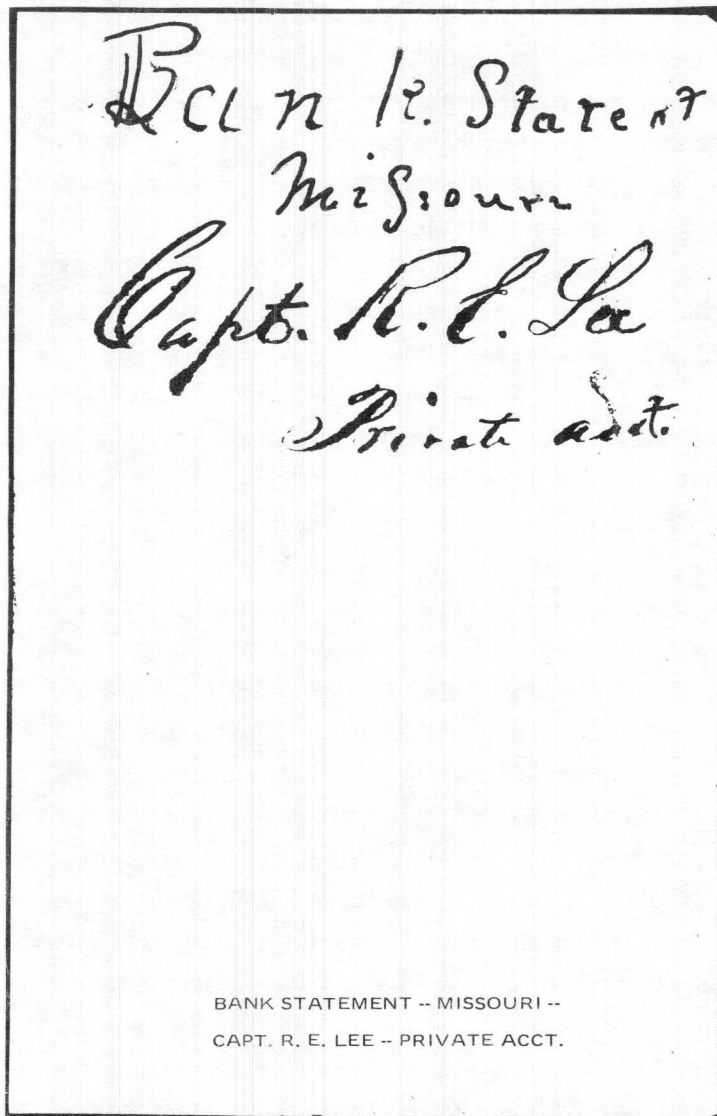 Bank. Statent
Missouri
Capt. R. E. Lee
Private acct.
BANK STATEMENT -- MISSOURI --
CAPT. R. E. LEE -- PRIVATE ACCT.